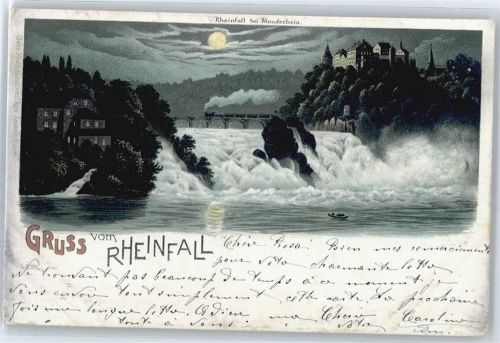 Rheinfall bei Mondschein.
GRUSS vom RHEINFALL
Chère Rosa! Bien mes remerciments
pour votre charmante lettre
ne trouvant pas beaucoup de temps à ce moment, je
vous envoie tout simplement cette carte. La prochaine
fois une longue lettre. Adieu ma Chère
toute à vous Votre Caroline